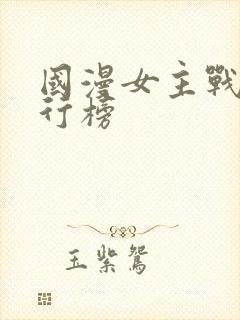 國漫女主戰
行榜
玉紫鴛